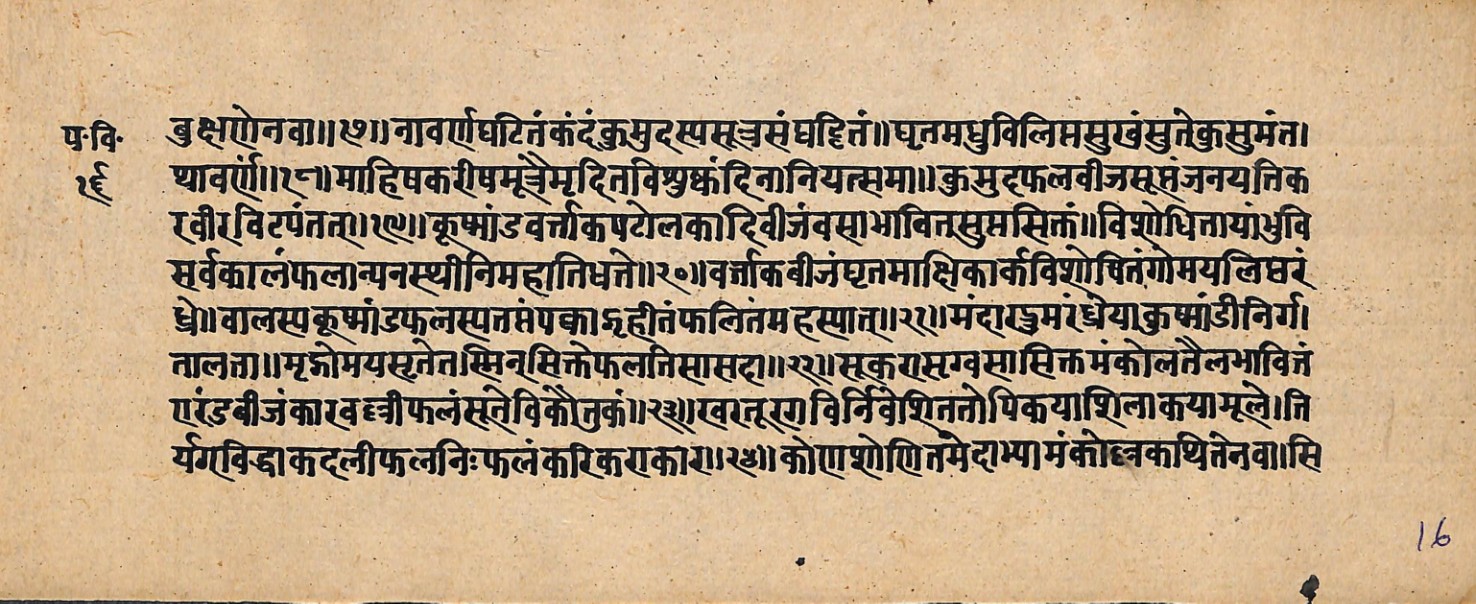 प॰वि॰
१६
बुक्षणेनवा॥१७॥नावर्णघटितंकंदंकुमुदस्यसूत्रसंघट्टितं॥घृतमधुविलिप्तसुखंसुतेकुसुमंत।
थावर्णं॥१८॥माहिषकरीषमूत्रैमृदितविशुष्कंदिनानियत्समा॥कुमुदफलवीजसूप्तंजनयतिक
रवीरविटपंतता॥१९॥कूष्मांडवर्त्ताकपटोलकादिवीजंवसाभावितसुप्तसिक्तं॥विशोधितायांभुवि
सर्वकालंफलान्यनस्थीनिमहातिधत्ते॥२०॥वर्त्ताकबीजंघृतमाक्षिकार्कविशोषितंगोमयलिप्तरं
ध्रे॥वालस्यकूष्मांडफलस्यतप्तंपक्वाद्गृहीतंफलितंमहस्यात्॥२१॥मंदारद्रुमरंध्रेयाकुष्मांडीनिर्ग।
तालता॥मृद्गोमयसृतेतस्मिन्सिक्तेफलतिसासदा॥२२॥सूकरासृग्वसासिक्तमंकोलतैलभावितं
एरंडबीजंकारवल्लीफलंसूतेविकौतुकं॥२३॥खरतूरगविर्निवेशिततोपिकयाशिलाकयामूले।ति
र्यगविद्धाकदलीफलनिःफलंकरिकराकार॥२४॥कोणशोणितमेदाभ्यामंकोल्लकथितेनवा॥सि
16